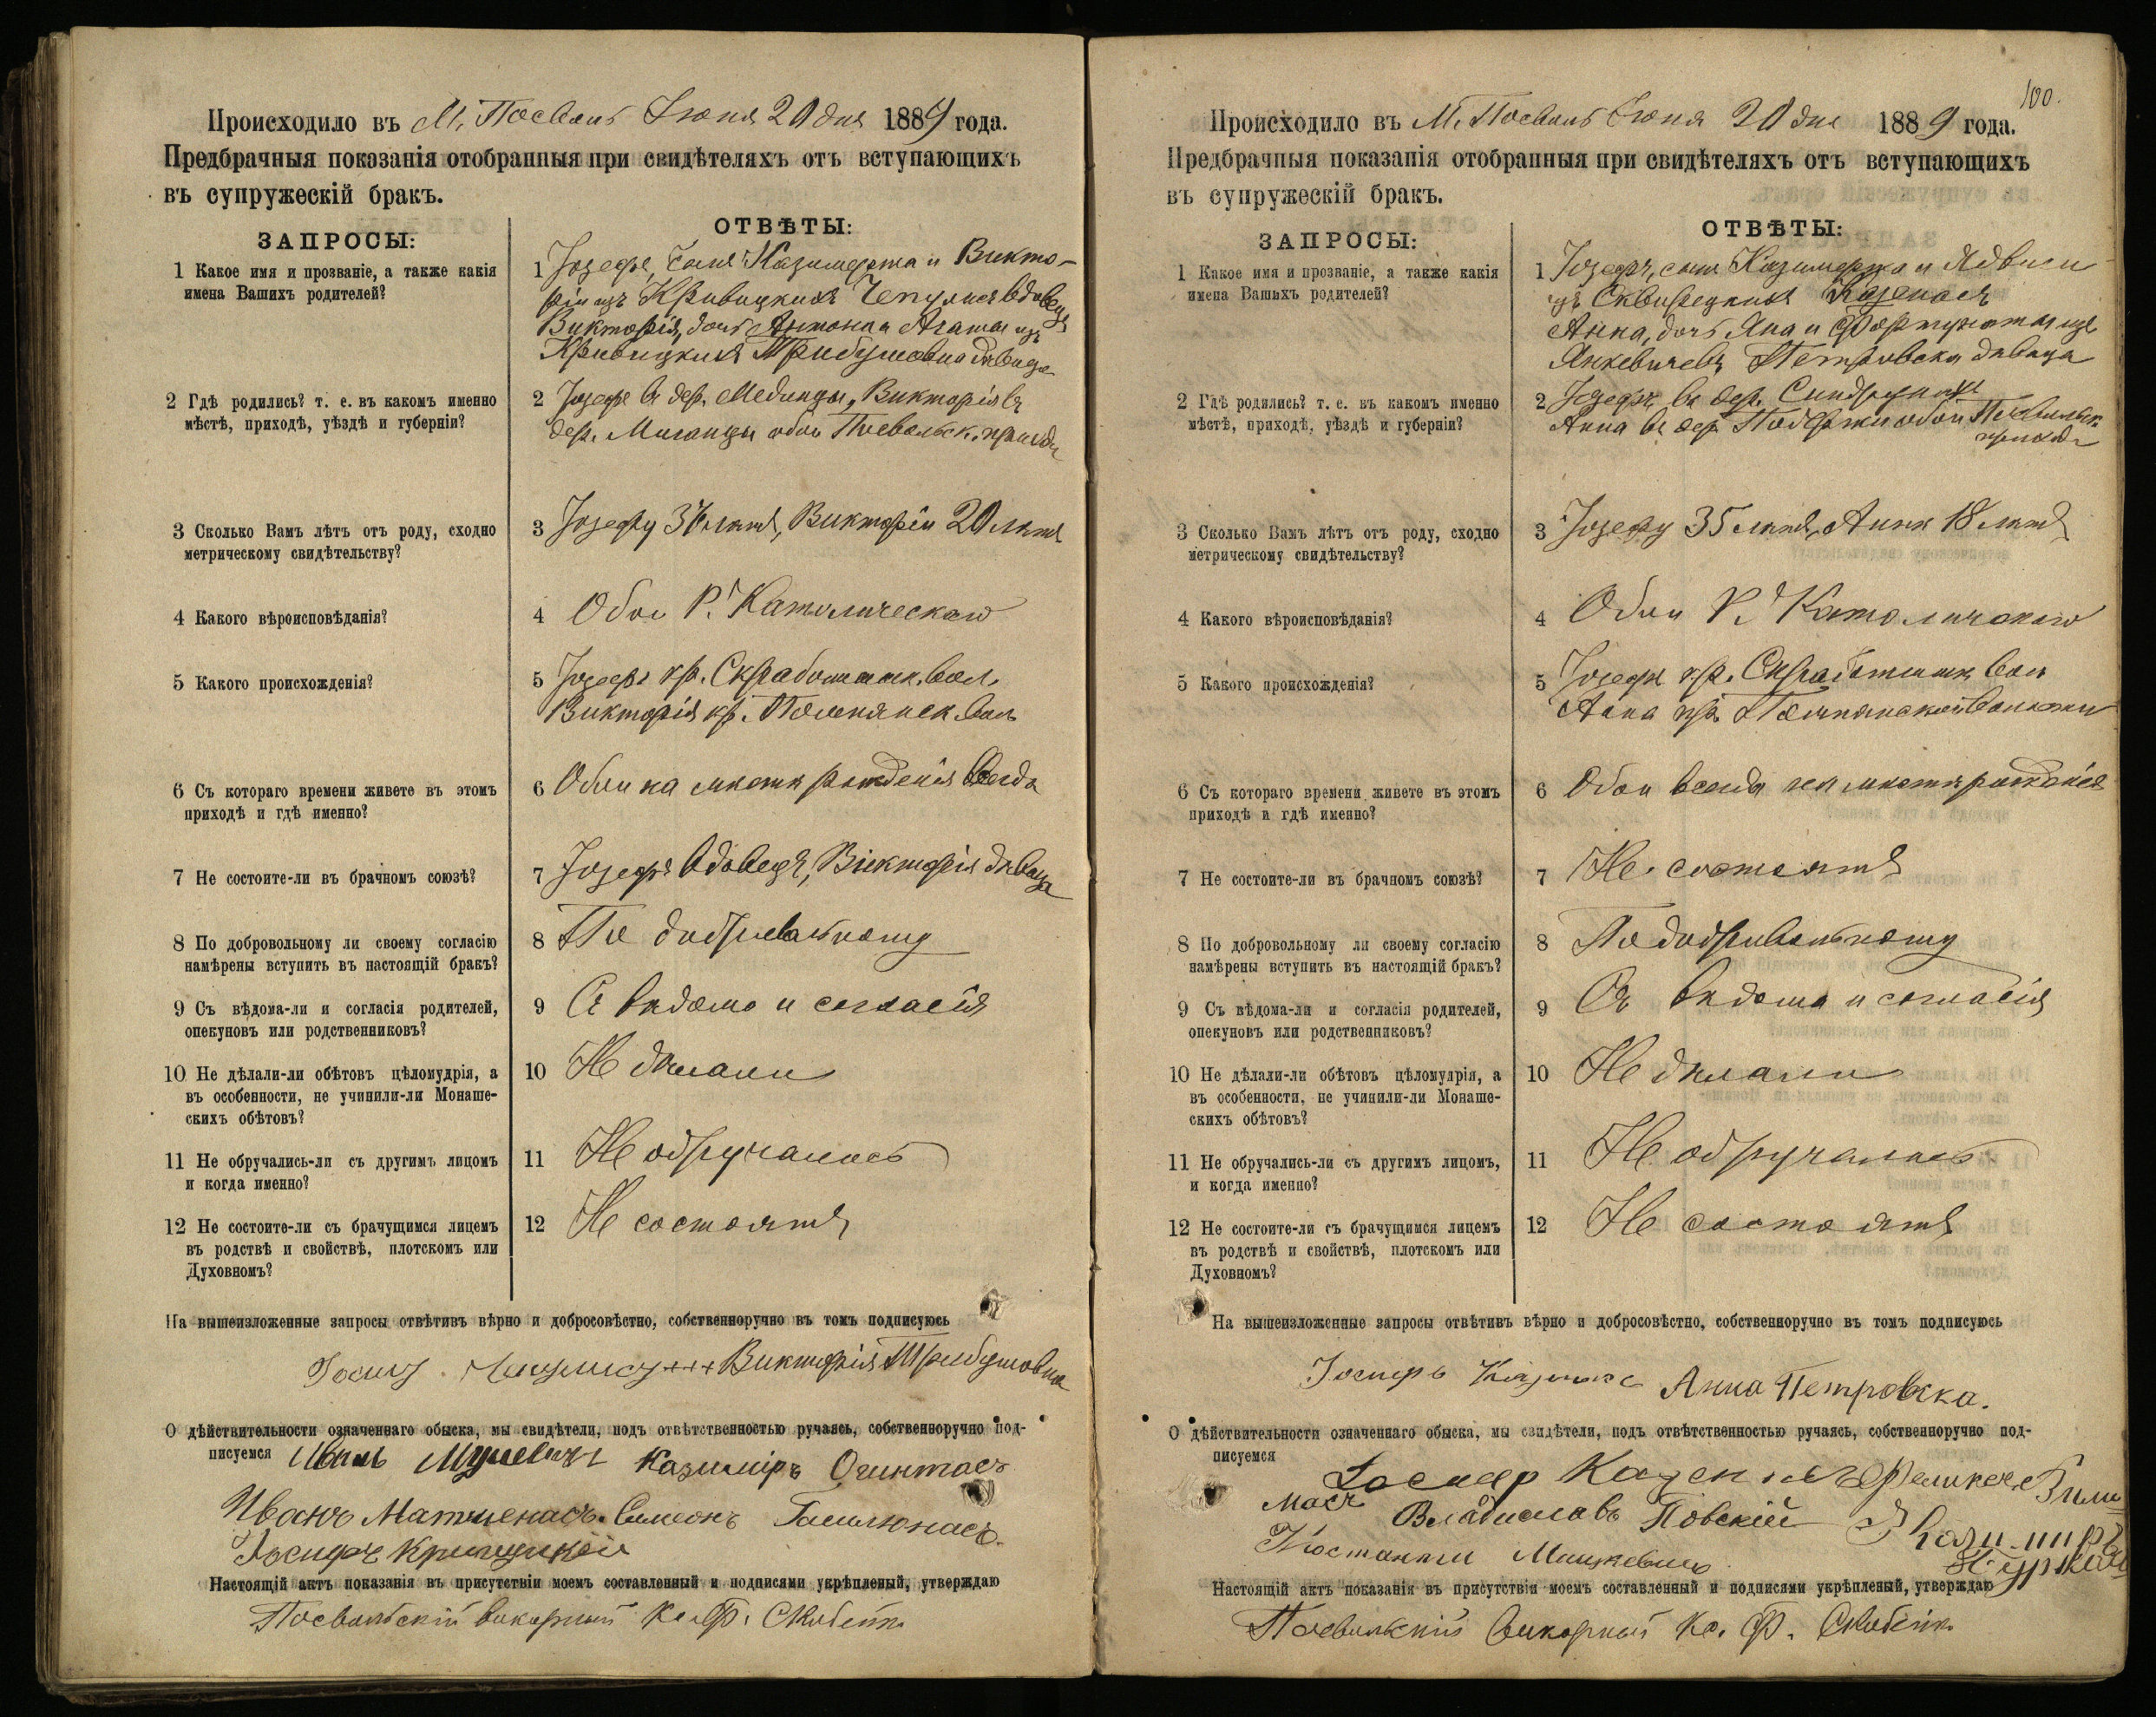 Происходило въ М. Посволь Іюня 20 дня 1889 года.
Предбрачныя показанія отобранныя при свидѣтеляхъ отъ вступающихъ
въ супружескій бракъ.
ЗАПРОСЫ:
ОТВѢТЫ:
1 Какое имя и прозваніе, а также какія
имена Вашихъ родителей?
1 Іозефъ, сынъ Казимержа и Викто-
ріи изъ Кривицкихъ Чепулисъ вдовецъ
Викторія, дочь Антона и Агаты изъ
Кривицкихъ Трибушовна дѣвица
2 Гдѣ родились? т. е. въ какомъ именно
мѣстѣ, приходѣ, уѣздѣ и губерніи?
2 Іозефъ въ дер. Мединцы, Викторія въ
дер. обои Посвольск. прихода
3 Сколько Вамъ лѣтъ отъ роду, сходно
метрическому свидѣтельству?
3 Іозефу лѣтъ, Викторіи 20 лѣтъ
4 Какого вѣроисповѣданія?
4 Обои Р. Католическаго
5 Какого происхожденія?
5 Іозефъ кр. Скработишк. вол.
Викторія кр. вол.
6 Съ котораго времени живете въ этомъ
приходѣ и гдѣ именно?
6 Обои на мѣстѣ рожденія всегда
7 Не состоите-ли въ брачномъ союзѣ?
7 Іозефъ вдовецъ, Викторія дѣвица
8 По добровольному ли своему согласію
намѣрены вступить въ настоящій бракъ?
8 По добровольному
9 Съ вѣдома-ли и согласія родителей,
опекуновъ или родственниковъ?
9 Съ вѣдома и согласія
10 Не дѣлали-ли обѣтовъ цѣломудрія, а
въ особенности, не учинили-ли Монаше-
скихъ обѣтовъ?
10 Не дѣлали
11 Не обручались-ли съ другимъ лицомъ
и когда именно?
11 Не обручались
12 Не состоите-ли съ брачущимся лицемъ
въ родствѣ и свойствѣ, плотскомъ или
Духовномъ?
12 Не состоятъ
На вышеизложенные запросы отвѣтивъ вѣрно и добросовѣстно, собственноручно въ томъ подписуюсь
+++ Викторія Трибушовна
О дѣйствительности означеннаго обыска, мы свидѣтели, подъ отвѣтственностью ручаясь, собственноручно под-
писуемся Казиміръ Огинтасъ
Иванъ Симеонъ
Настоящій актъ показанія въ присутствіи моемъ составленный и подписями укрѣпленый, утверждаю
Посвольскій викарный Кс. Ф.
100.
Происходило въ М. Посволь Іюня 20 дня 1889 года.
Предбрачныя показанія отобранныя при свидѣтеляхъ отъ вступающихъ
въ супружескій бракъ.
ЗАПРОСЫ:
ОТВѢТЫ:
1 Какое имя и прозваніе, а также какія
имена Вашихъ родителей?
1 Іозефъ, сынъ Казимержа и Ядвиги
изъ Сквирецкихъ Казенасъ
Анна, дочь Яна и Фортунаты изъ
Янкевичевъ Петровска дѣвица
2 Гдѣ родились? т. е. въ какомъ именно
мѣстѣ, приходѣ, уѣздѣ и губерніи?
2 Іозефъ въ дер.
Анна въ дер. обои Посвольск.
прихода
3 Сколько Вамъ лѣтъ отъ роду, сходно
метрическому свидѣтельству?
3 Іозефу 35 лѣтъ, Аннѣ 18 лѣтъ
4 Какого вѣроисповѣданія?
4 Обои Р. Католическаго
5 Какого происхожденія?
5 Іозефъ кр. Скработишк. вол.
Анна кр. волости
6 Съ котораго времени живете въ этомъ
приходѣ и гдѣ именно?
6 Обои всегда на мѣстѣ рожденія
7 Не состоите-ли въ брачномъ союзѣ?
7 Не состоятъ
8 По добровольному ли своему согласію
намѣрены вступить въ настоящій бракъ?
8 По добровольному
9 Съ вѣдома-ли и согласія родителей,
опекуновъ или родственниковъ?
9 Съ вѣдома и согласія
10 Не дѣлали-ли обѣтовъ цѣломудрія, а
въ особенности, не учинили-ли Монаше-
скихъ обѣтовъ?
10 Не дѣлали
11 Не обручались-ли съ другимъ лицомъ,
и когда именно?
11 Не обручались
12 Не состоите-ли съ брачущимся лицемъ
въ родствѣ и свойствѣ, плотскомъ или
Духовномъ?
12 Не состоятъ
На вышеизложенные запросы отвѣтивъ вѣрно и добросовѣстно, собственноручно въ томъ подписуюсь
Анна Петровска.
О дѣйствительности означеннаго обыска, мы свидѣтели, подъ отвѣтственностью ручаясь, собственноручно под-
писуемся
Владиславъ Повскій Казимиръ
Настоящій актъ показанія въ присутствіи моемъ составленный и подписями укрѣпленый, утверждаю
Посвольскій викарный Кс. Ф.